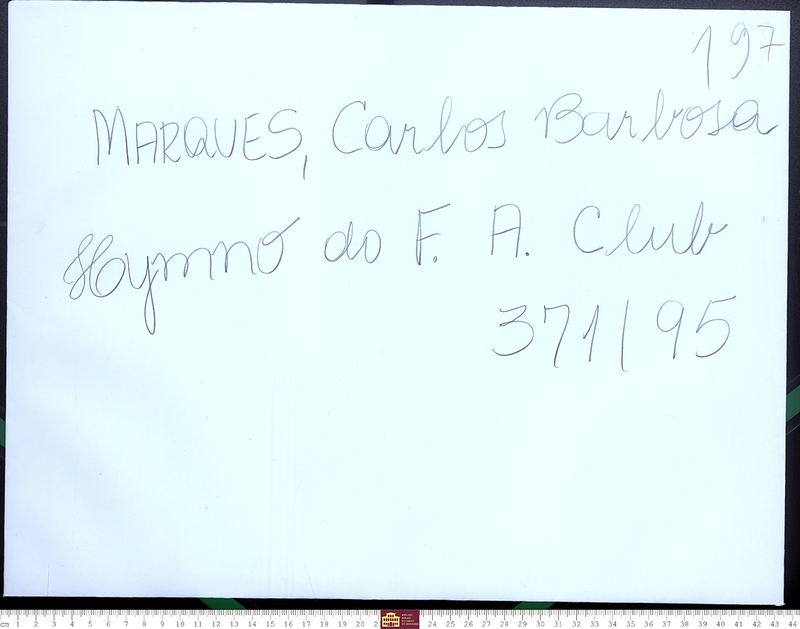 197
MARQUES, Carlos Barbosa
Hymno do F. A. Club
371/95
cm 1 2 3 4 5 6 7 8 9 10 11 12 13 14 15 16 17 18 19 20 2 24 25 26 27 28 29 30 31 32 33 34 35 36 37 38 39 40 41 42 43 44